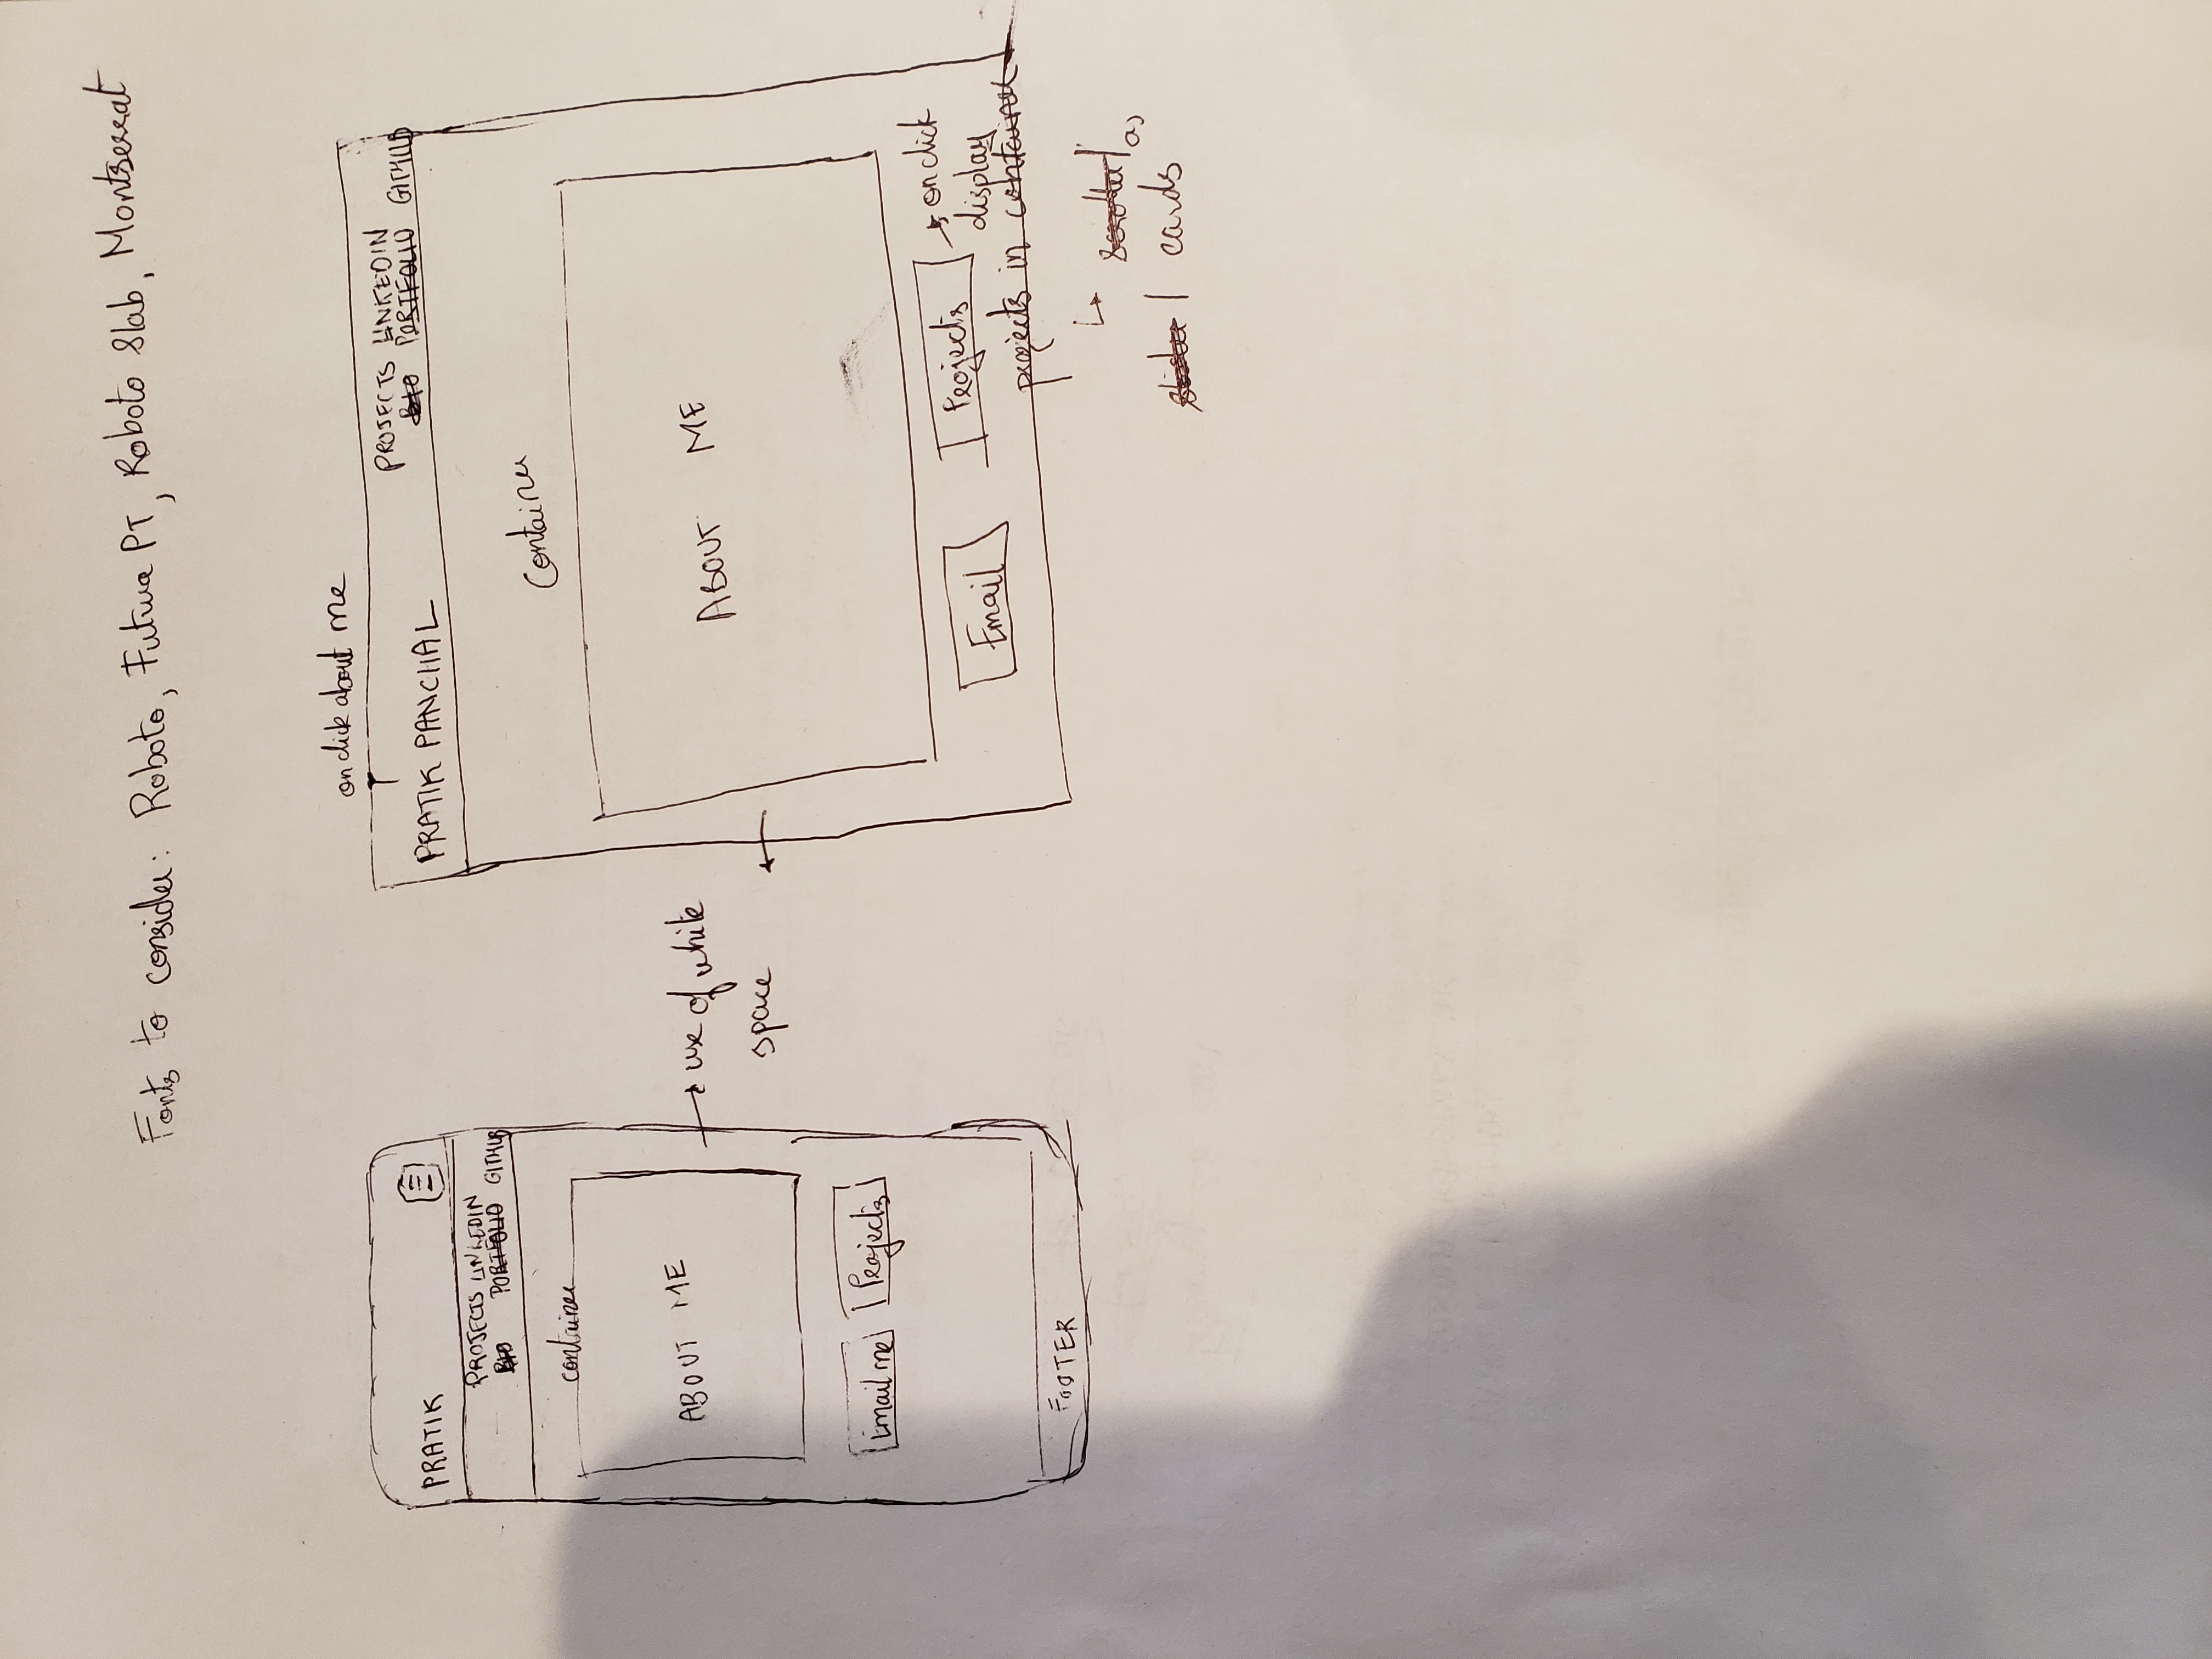 Fonts to consider: Roboto, Futura PT, Roboto Slab, Montserrat
PRATIK
PROJECTS LINKEDIN
BIO PORTFOLIO GITHUB
container
ABOUT ME
Email me Projects
FOOTER
use of white
space
on click about me
PROJECTS LINKEDIN
BIO PORTFOLIO GITHUB
PRATIK PANCHAL
Container
ABOUT ME
Email Projects
on click
display
projects in container
scroller / as
slider / cards